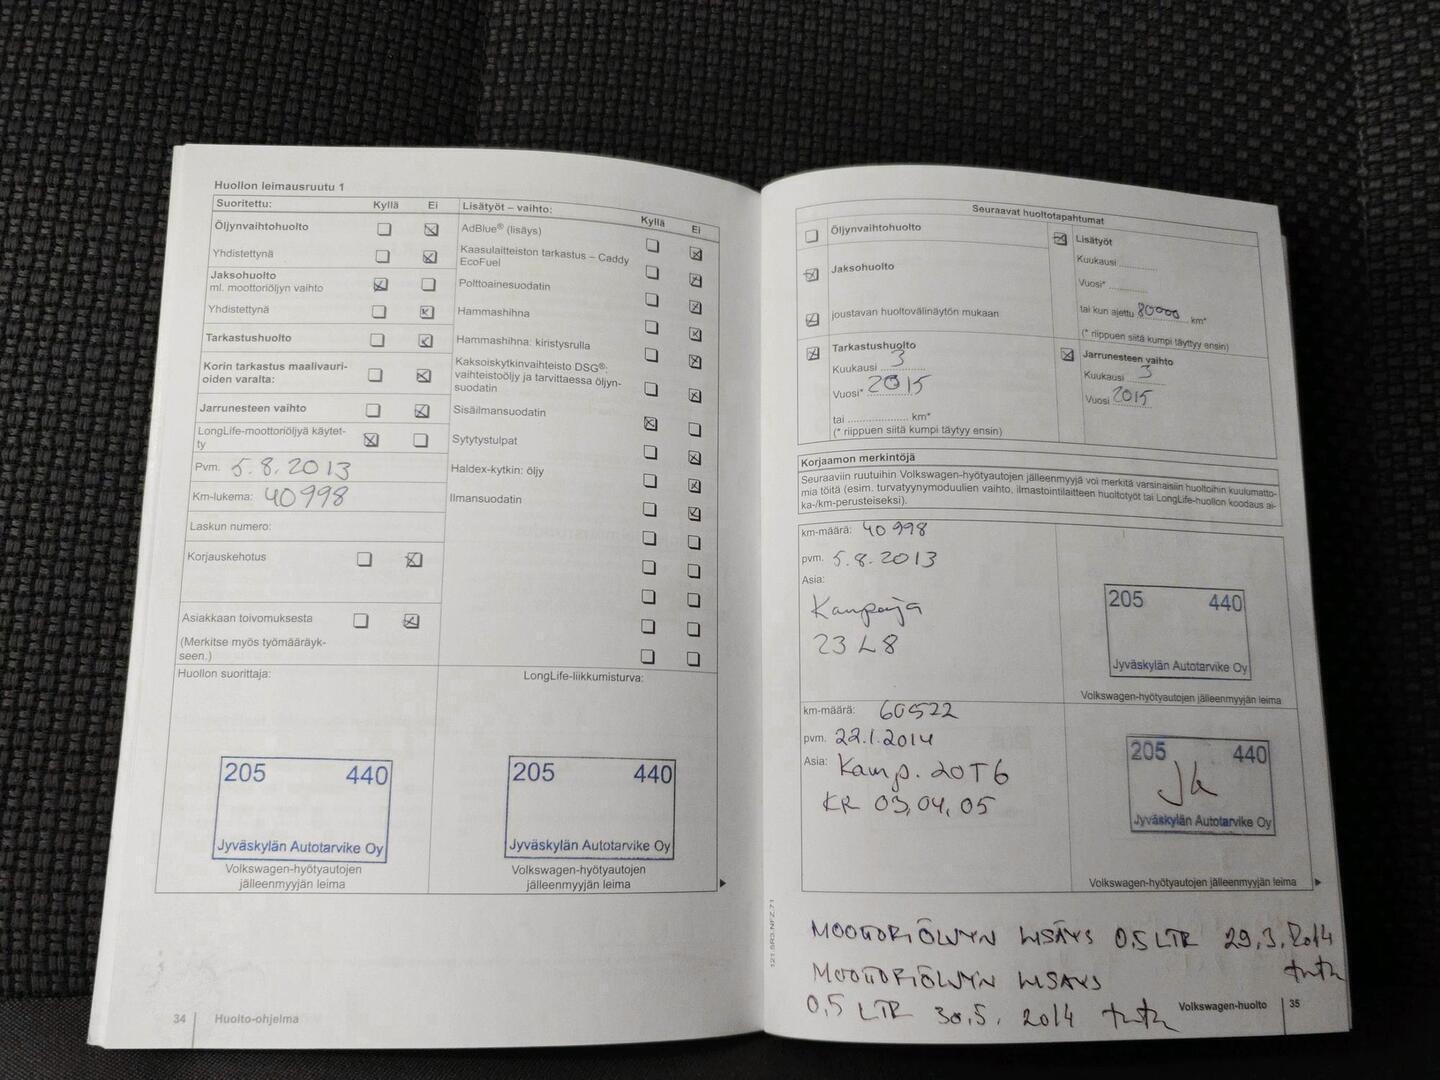 Huollon leimausruutu 1
Suoritettu: Kyllä Ei
Öljynvaihtohuolto
Yhdistettynä
Jaksohuolto
ml. moottoriöljyn vaihto
Yhdistettynä
Tarkastushuolto
Korin tarkastus maalivauri-
oiden varalta:
Jarrunesteen vaihto
LongLife-moottoriöljyä käytet-
ty
Pvm. 5.8.2013
Km-lukema: 40998
Laskun numero:
Korjauskehotus
Asiakkaan toivomuksesta
(Merkitse myös työmääräyk-
seen.)
Lisätyöt – vaihto: Kyllä Ei
AdBlue® (lisäys)
Kaasulaitteiston tarkastus – Caddy
EcoFuel
Polttoainesuodatin
Hammashihna
Hammashihna: kiristysrulla
Kaksoiskytkinvaihteisto DSG®:
vaihteistoöljy ja tarvittaessa öljyn-
suodatin
Sisäilmansuodatin
Sytytystulpat
Haldex-kytkin: öljy
Ilmansuodatin
Huollon suorittaja:
205 440
Jyväskylän Autotarvike Oy
Volkswagen-hyötyautojen
jälleenmyyjän leima
LongLife-liikkumisturva:
205 440
Jyväskylän Autotarvike Oy
Volkswagen-hyötyautojen
jälleenmyyjän leima
34 Huolto-ohjelma
Seuraavat huoltotapahtumat
Öljynvaihtohuolto
Jaksohuolto
joustavan huoltovälinäytön mukaan
Tarkastushuolto
Kuukausi 3
Vuosi* 2015
tai .................... km*
(* riippuen siitä kumpi täytyy ensin)
Lisätyöt
Kuukausi ............
Vuosi* ............
tai kun ajettu 80000 km*
(* riippuen siitä kumpi täyttyy ensin)
Jarrunesteen vaihto
Kuukausi 3
Vuosi 2015
Korjaamon merkintöjä
Seuraaviin ruutuihin Volkswagen-hyötyautojen jälleenmyyjä voi merkitä varsinaisiin huoltoihin kuulumatto-
mia töitä (esim. turvatyynymoduulien vaihto, ilmastointilaitteen huoltotyöt tai LongLife-huollon koodaus ai-
ka-/km-perusteiseksi).
km-määrä: 40998
pvm. 5.8.2013
Asia:
Kampanja
23L8
205 440
Jyväskylän Autotarvike Oy
Volkswagen-hyötyautojen jälleenmyyjän leima
km-määrä: 60522
pvm. 22.1.2014
Asia: Kamp. 20T6
KR 03,04,05
205 440
Jyväskylän Autotarvike Oy
Volkswagen-hyötyautojen jälleenmyyjän leima
121.5R3.NFZ.71
MOOTTORIÖLJYN LISÄYS 0,5 LTR 29.3.2014
MOOTTORIÖLJYN LISÄYS
0,5 LTR 30.5.2014
Volkswagen-huolto 35